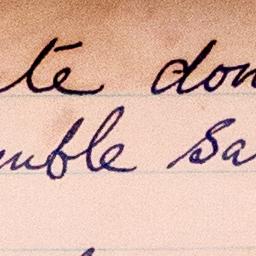 té don
mble sa